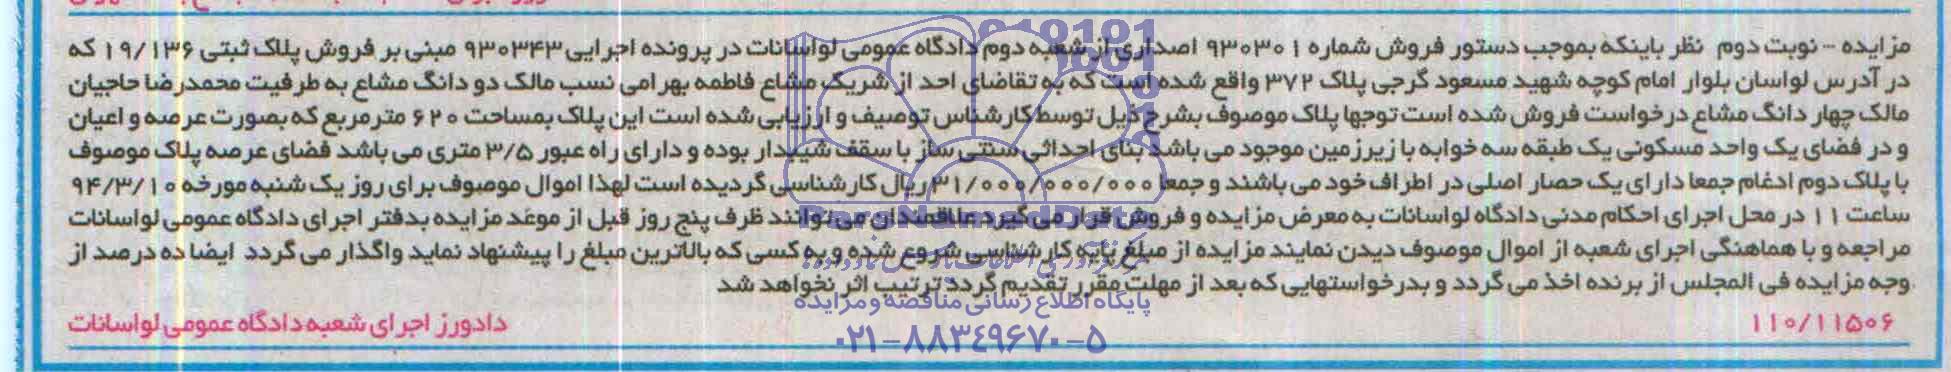 مزایده - نوبت دوم نظر باینکه بموجب دستور فروش شماره ۹۳۰۳۰۱ اصداری از شعبه دوم دادگاه عمومی لواسانات در پرونده اجرایی ۹۳۰۳۴۳ مبنی بر فروش پلاک ثبتی ۱۹/۱۳۶ که
در آدرس لواسان بلوار امام کوچه شهید مسعود گرجی پلاک ۳۷۲ واقع شده است که به تقاضای احد از شریک مشاع فاطمه بهرامی نسب مالک دو دانگ مشاع به طرفیت محمدرضا حاجیان
مالک چهار دانگ مشاع درخواست فروش شده است توجها پلاک موصوف بشرح ذیل توسط کارشناس توصیف و ارزیابی شده است این پلاک بمساحت ۶۲۰ مترمربع که بصورت عرصه و اعیان
و در فضای یک واحد مسکونی یک طبقه سه خوابه با زیرزمین موجود می باشد بنای احداثی سنتی ساز با سقف شیبدار بوده و دارای راه عبور ۳/۵ متری می باشد فضای عرصه پلاک موصوف
با پلاک دوم ادغام جمعا دارای یک حصار اصلی در اطراف خود می باشند و جمعا ۳۱/۰۰۰/۰۰۰/۰۰۰ ریال کارشناسی گردیده است لهذا اموال موصوف برای روز یک شنبه مورخه ۹۴/۳/۱۰
ساعت ۱۱ در محل اجرای احکام مدنی دادگاه لواسانات به معرض مزایده و فروش قرار می گیرد علاقمندان می توانند ظرف پنج روز قبل از موعد مزایده بدفتر اجرای دادگاه عمومی لواسانات
مراجعه و با هماهنگی اجرای شعبه از اموال موصوف دیدن نمایند مزایده از مبلغ پایه کارشناسی شروع شده و به کسی که بالاترین مبلغ را پیشنهاد نماید واگذار می گردد ایضا ده درصد از
وجه مزایده فی المجلس از برنده اخذ می گردد و بدرخواستهایی که بعد از مهلت مقرر تقدیم گردد ترتیب اثر نخواهد شد
پایگاه اطلاع رسانی مناقصه و مزایده
۱۱۰/۱۱۵۰۶
دادورز اجرای شعبه دادگاه عمومی لواسانات
۰۲۱-۸۸۳۴۹۶۷۰-۵